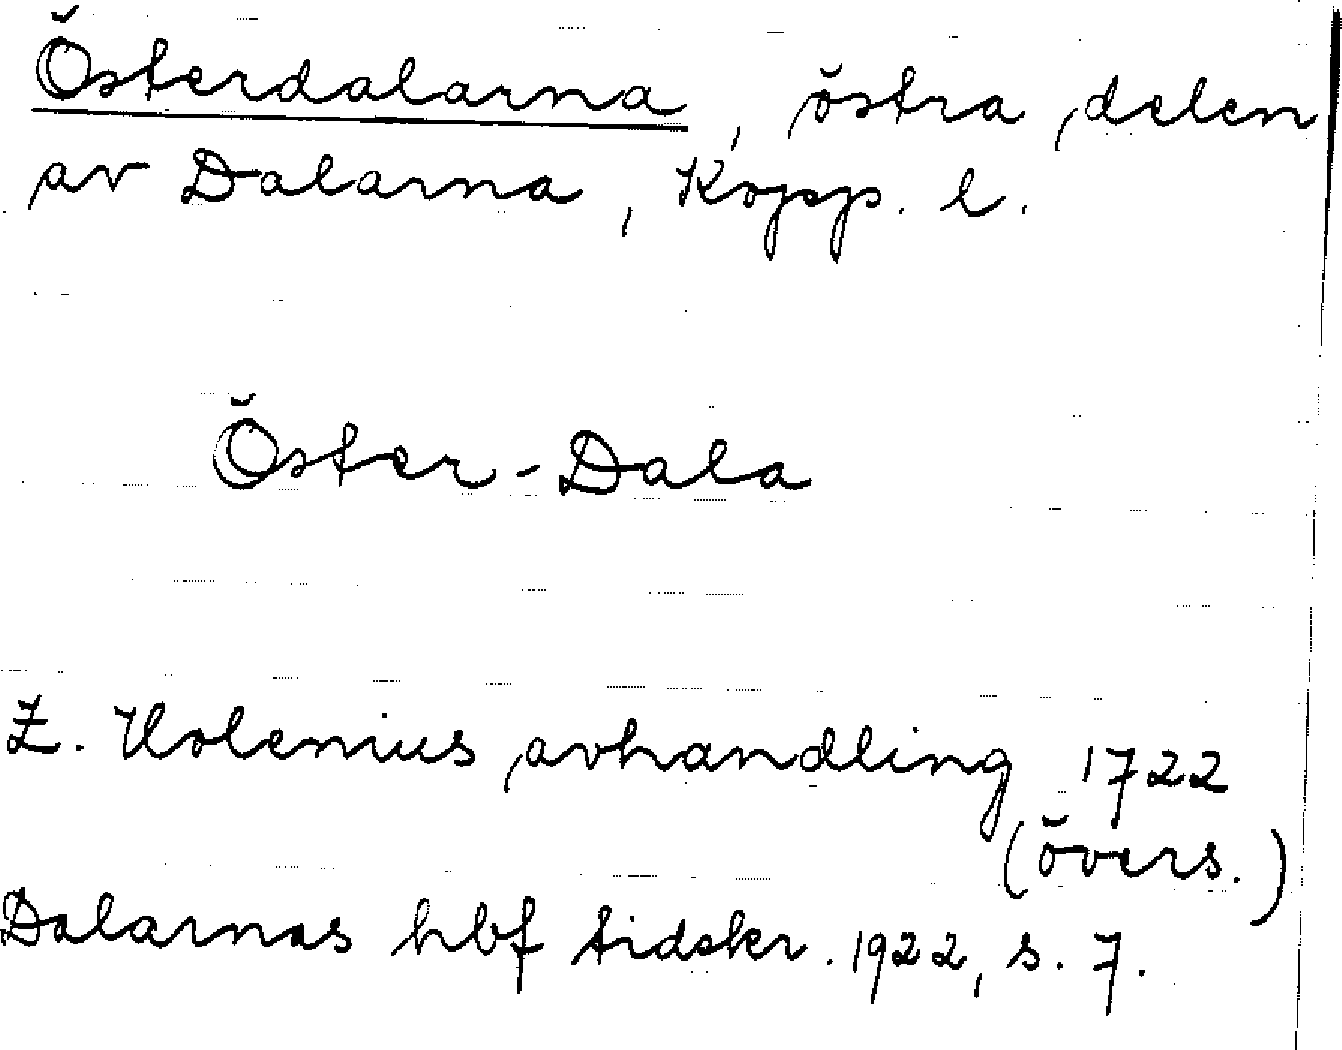 Österdalarna, östra delen
av Dalarna, Kopp. l.
Öster-Dala
Z. Holenius avhandling 1722
(övers.)
Dalarnas hbf tidskr. 1922, s. 7.